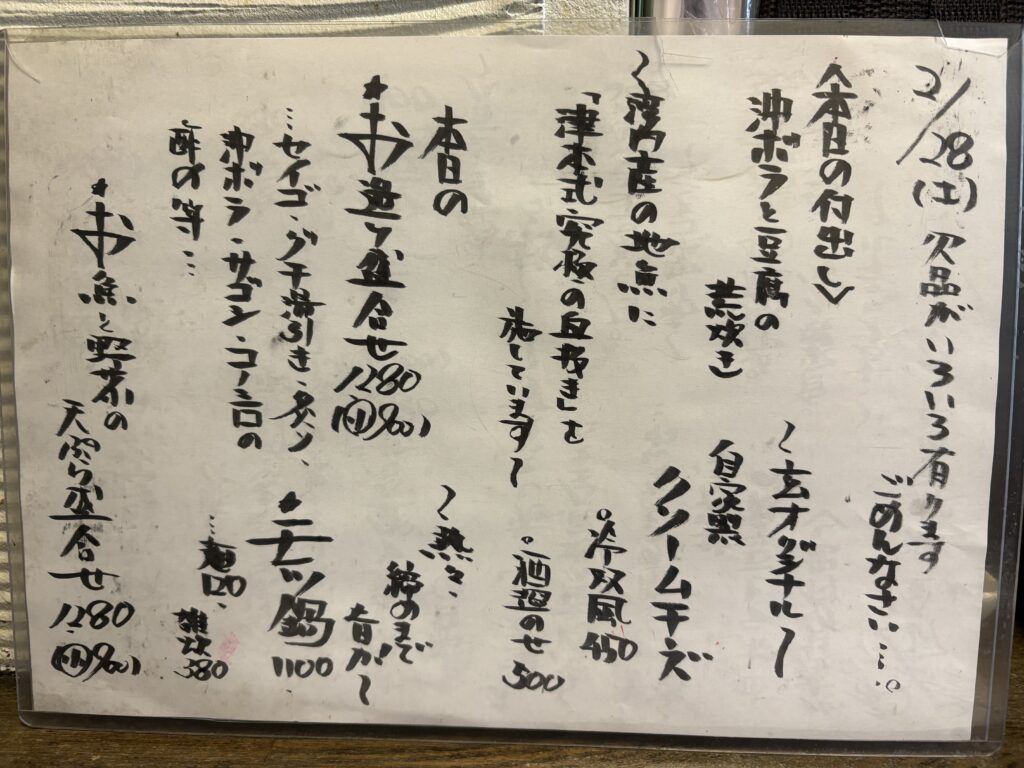 2/28(土) 欠品がいろいろ有ります
ごめんなさい…。
〈本日の付出し〉
沖ボラと豆腐の
荒炊き
〜湾内産の地魚に
「津本式・究極の血抜き」を
施しています〜
本日の
★お造り盛合せ
1280
…セイゴ・グチ湯引き・タイ、
沖ボラ・サゴシ・コノシロの
酢〆等…
★お魚と野菜の
天ぷら盛合せ
1280
〜玄オリジナル〜
自家製
クリームチーズ
冷奴風 450
酒盗のせ 500
〜熱々、
締めまで
旨か〜
★モツ鍋
1100
…麺120、
雑炊380